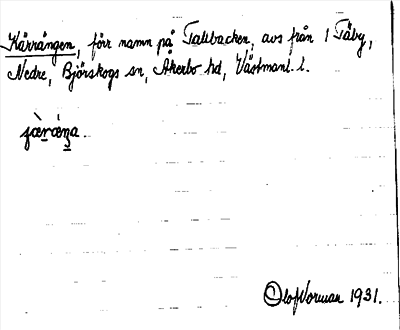 Kärrängen, förr namn på Tallbacken, avs från 1 Täby,
Nedre, Björskogs sn, Åkerbo hd, Västmanl. l.
Olof Norman 1931.